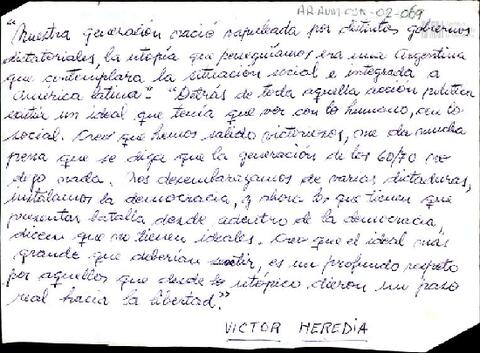 AR-AUM CSR-02-069
"Nuestra generación nació vapuleada por distintos gobiernos
dictatoriales, la utopía que perseguíamos era una Argentina
que contemplara la situación social e integrada a
América latina". "Detrás de toda aquella acción política
existía un ideal que tenía que ver con lo humano, con lo
social. Creo que hemos salido victoriosos, me da mucha
pena que se diga que la generación de los 60/70 no
dejó nada. Nos desembarazamos de varias dictaduras,
instalamos la democracia, y ahora los que tienen que
presentar batalla desde adentro de la democracia,
dicen que no tienen ideales. Creo que el ideal más
grande que deberían sentir, es un profundo respeto
por aquellos que desde lo utópico dieron un paso
real hacia la libertad."
VICTOR HEREDIA